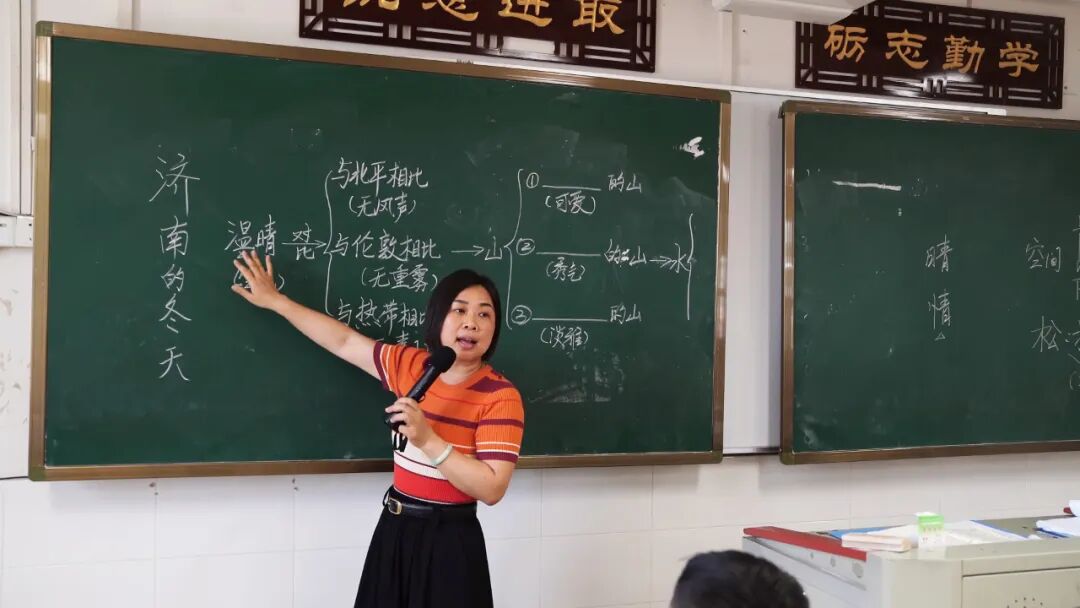 励志勤学
济南的冬天
温晴
对比
与北平相比
(无风声)
与伦敦相比
(无重雾)
与热带相比
山
① 的山
(可爱)
② 的山
(秀气)
② 的山
(淡雅)
水
晴
情
空间
松